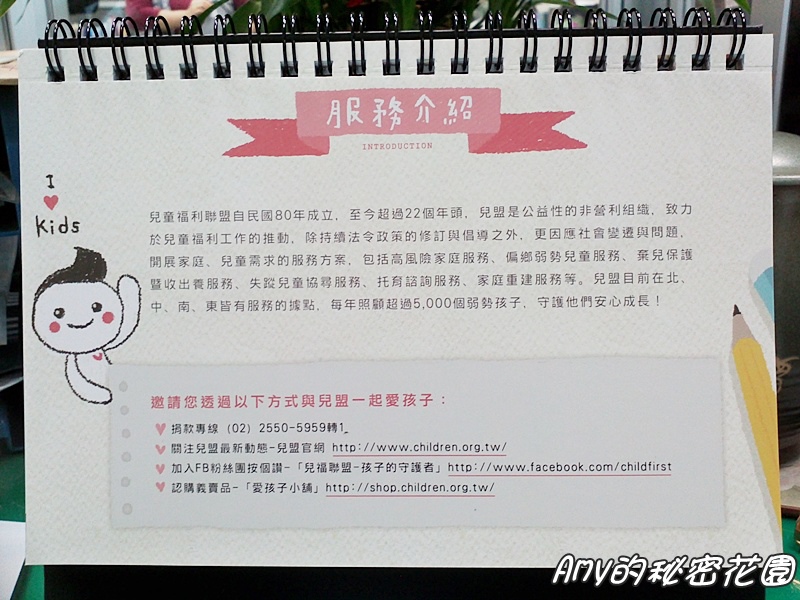 服務介紹
INTRODUCTION
I
Kids
兒童福利聯盟自民國80年成立，至今超過22個年頭，兒盟是公益性的非營利組織，致力
於兒童福利工作的推動，除持續法令政策的修訂與倡導之外，更因應社會變遷與問題，
開展家庭、兒童需求的服務方案，包括高風險家庭服務、偏鄉弱勢兒童服務、棄兒保護
暨收出養服務、失蹤兒童協尋服務、托育諮詢服務、家庭重建服務等。兒盟目前在北、
中、南、東皆有服務的據點，每年照顧超過5,000個弱勢孩子，守護他們安心成長！
邀請您透過以下方式與兒盟一起愛孩子：
捐款專線（02）2550-5959轉1_
關注兒盟最新動態-兒盟官網 http://www.children.org.tw/
加入FB粉絲團按個讚-「兒福聯盟-孩子的守護者」http://www.facebook.com/childfirst
認購義賣品-「愛孩子小舖」http://shop.children.org.tw/
Amy的秘密花園